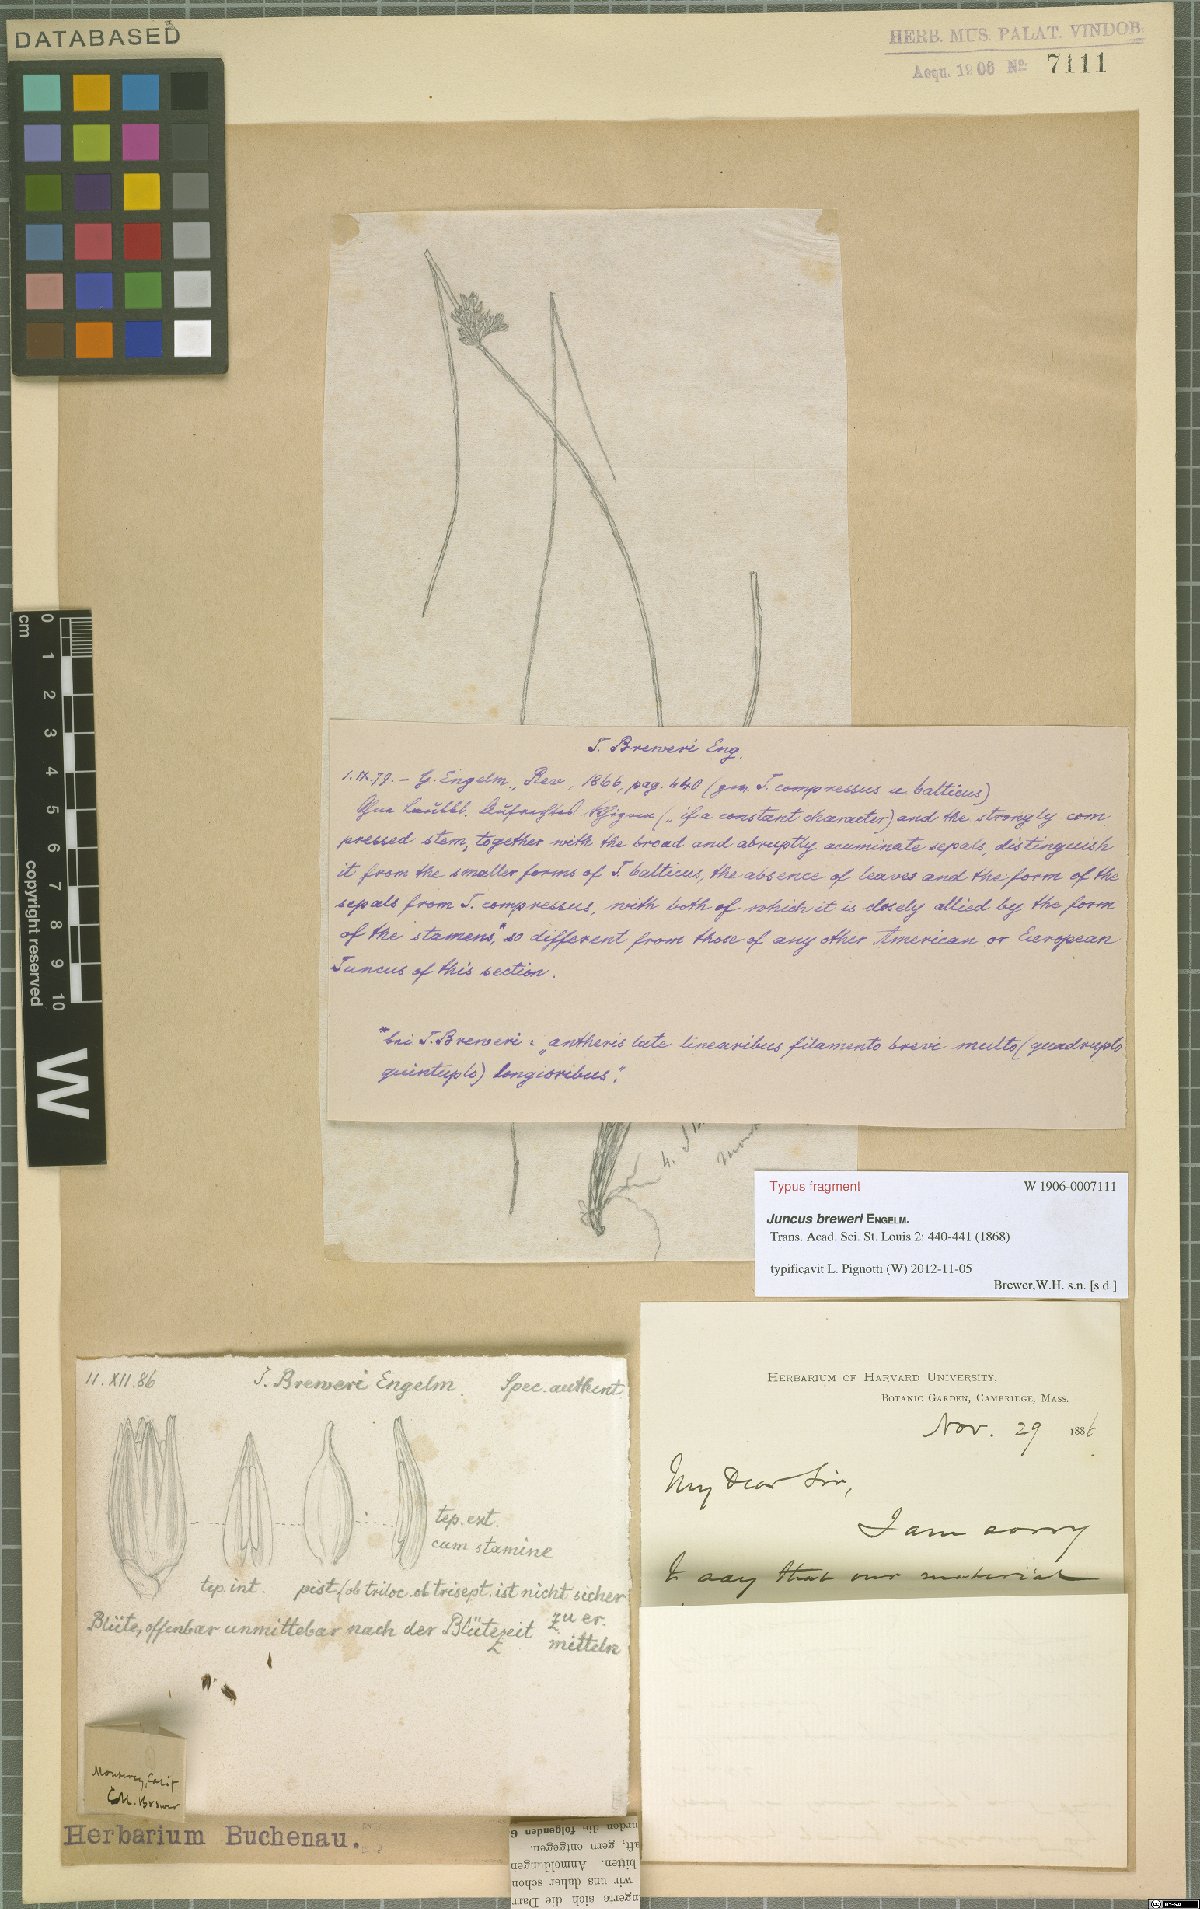 DATABASED
HERB. MUS. PALAT. VINDOB.
Acqu. 1906 No. 7111
J. Breweri Eng.
1.IX.79. – G. Engelm., Rev., 1866, pag. 440 (zw. J. compressus u. balticus)
(„if a constant character) and the strongly com
pressed stem, together with the broad and abruptly acuminate sepals, distinguish
it from the smaller forms of J. balticus, the absence of leaves and the form of the
sepals from J. compressus, with both of which it is closely allied by the form
of the stamens,* so different from those of any other American or European
Juncus of this section.
*bei J. Breweri: „antheris late linearibus filamento brevi multo (quadruplo
quintuplo) longioribus".
Typus fragment W 1906-0007111
Juncus breweri ENGELM.
Trans. Acad. Sci. St. Louis 2: 440-441 (1868)
typificavit L. Pignotti (W) 2012-11-05
Brewer,W.H. s.n. [s.d.]
11. XII. 86 J. Breweri Engelm. Spec. authent.
tep. ext.
cum stamine
tep. int. pist. (ob triloc. ob trisept. ist nicht sicher
zu er.
mitteln
Blüte, offenbar unmittebar nach der Blütezeit
Monterey, Calif
Brewer
Herbarium Buchenau.
HERBARIUM OF HARVARD UNIVERSITY,
BOTANIC GARDEN, CAMBRIDGE, MASS.
Nov. 29 1886
My Dear Sir,
I am sorry
to say that our material
ngerte sich die Darr
wir uns daher schon
bitten. Anmeldungen
aft, gern entgegen.
urden die folgenden G
cm
0
1
2
3
4
5
6
7
8
9
10
copyright reserved
W